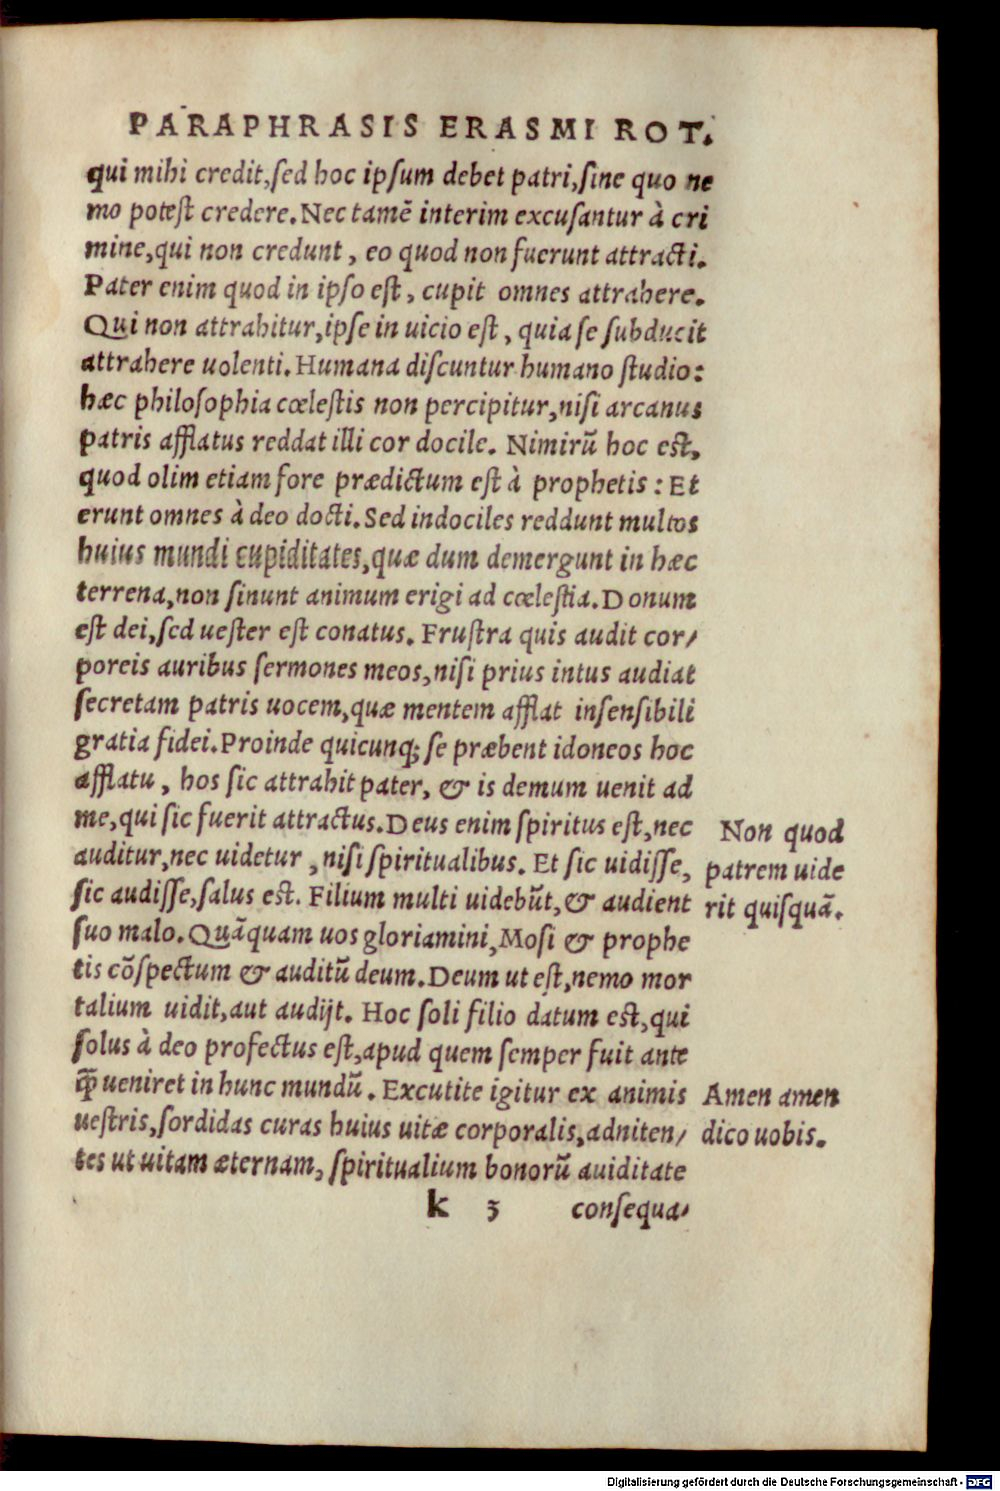 PARAPHRASIS ERASMI ROT.
qui mihi credit, sed hoc ipsum debet patri, sine quo ne
mo potest credere. Nec tamē interim excusantur à cri
mine, qui non credunt, eo quod non fuerunt attracti.
Pater enim quod in ipso est, cupit omnes attrahere.
Qui non attrahitur, ipse in uicio est, quia se subducit
attrahere uolenti. Humana discuntur humano studio:
hæc philosophia cœlestis non percipitur, nisi arcanus
patris afflatus reddat illi cor docile. Nimirū hoc est,
quod olim etiam fore prædictum est à prophetis: Et
erunt omnes à deo docti. Sed indociles reddunt multos
huius mundi cupiditates, quæ dum demergunt in hæc
terrena, non sinunt animum erigi ad cœlestia. Donum
est dei, sed uester est conatus. Frustra quis audit cor/
poreis auribus sermones meos, nisi prius intus audiat
secretam patris uocem, quæ mentem afflat insensibili
gratia fidei. Proinde quicunq; se præbent idoneos hoc
afflatu, hos sic attrahit pater, & is demum uenit ad
me, qui sic fuerit attractus. Deus enim spiritus est, nec
auditur, nec uidetur, nisi spiritualibus. Et sic uidisse,
sic audisse, salus est. Filium multi uidebūt, & audient
suo malo. Quāquam uos gloriamini, Mosi & prophe
tis cōspectum & auditū deum. Deum ut est, nemo mor
talium uidit, aut audijt. Hoc soli filio datum est, qui
solus à deo profectus est, apud quem semper fuit ante
q̄ ueniret in hunc mundū. Excutite igitur ex animis
uestris, sordidas curas huius uitæ corporalis, adniten/
tes ut uitam æternam, spiritualium bonorū auiditate
k 3 consequa/
Non quod
patrem uide
rit quisquā.
Amen amen
dico uobis.
Digitalisierung gefördert durch die Deutsche Forschungsgemeinschaft - DFG